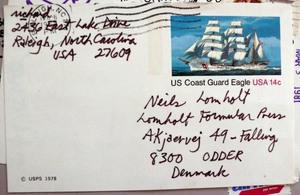 richard
2436 East Lake Drive
Raleigh, North Carolina
USA 27609
US Coast Guard Eagle USA 14c
Neils Lomholt
Lomholt Formular Press
AKjaervej 49 - Falling
8300 ODDER
Denmark
© USPS 1978
1981